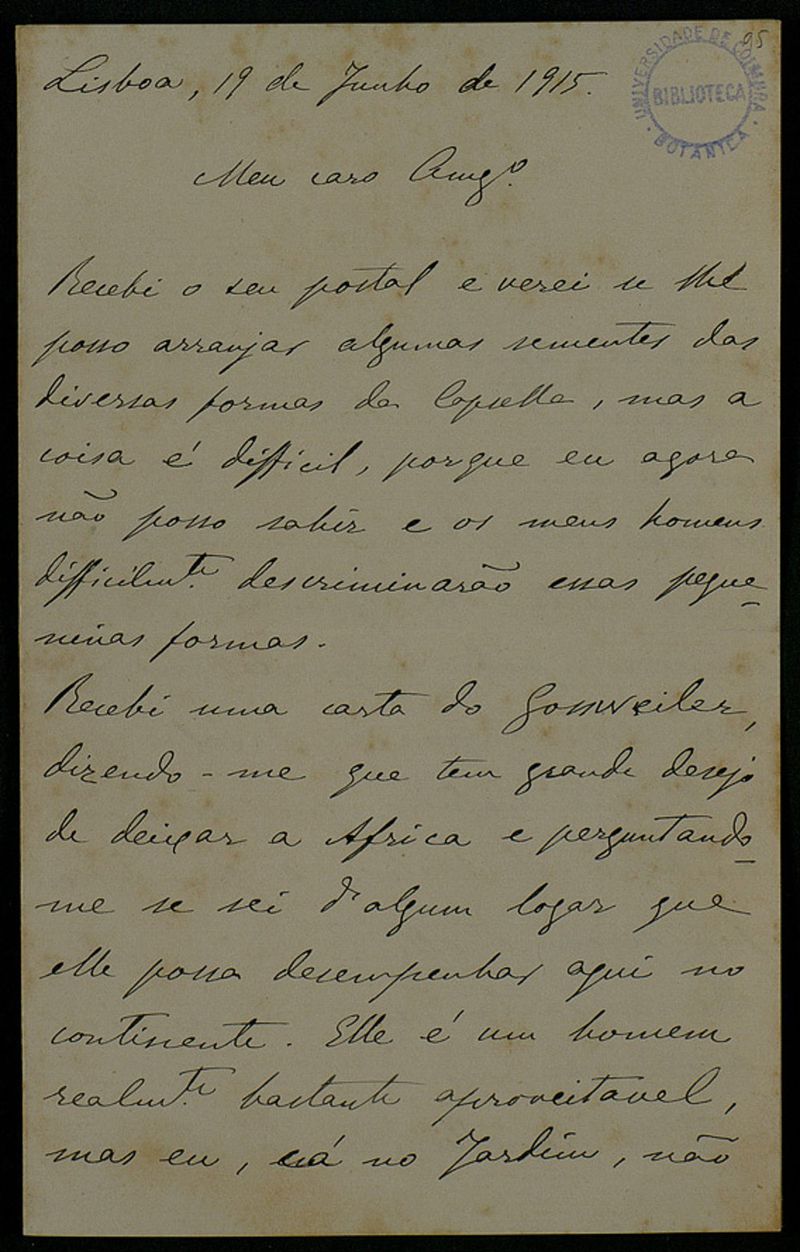 95
UNIVERSIDADE DE COIMBRA
BIBLIOTECA
BOTANICA
Lisboa, 19 de Junho de 1915.
Meu caro Amgº.
Recebi o seu postal e verei se lhe
posso arranjar algumas sementes das
diversas formas da Capsella, mas a
coisa é difficil, porque eu agora
não posso sahir e os meus homens
difficilmte. descriminarão essas peque-
ninas formas.
Recebi uma carta do Gossweiler,
dizendo-me que tem grande desejo
de deixar a Africa e perguntando-
me se sei d'algum logar que
elle possa desempenhar aqui no
continente. Elle é um homem
realmte. bastante aproveitavel,
mas eu, cá no Jardim, não